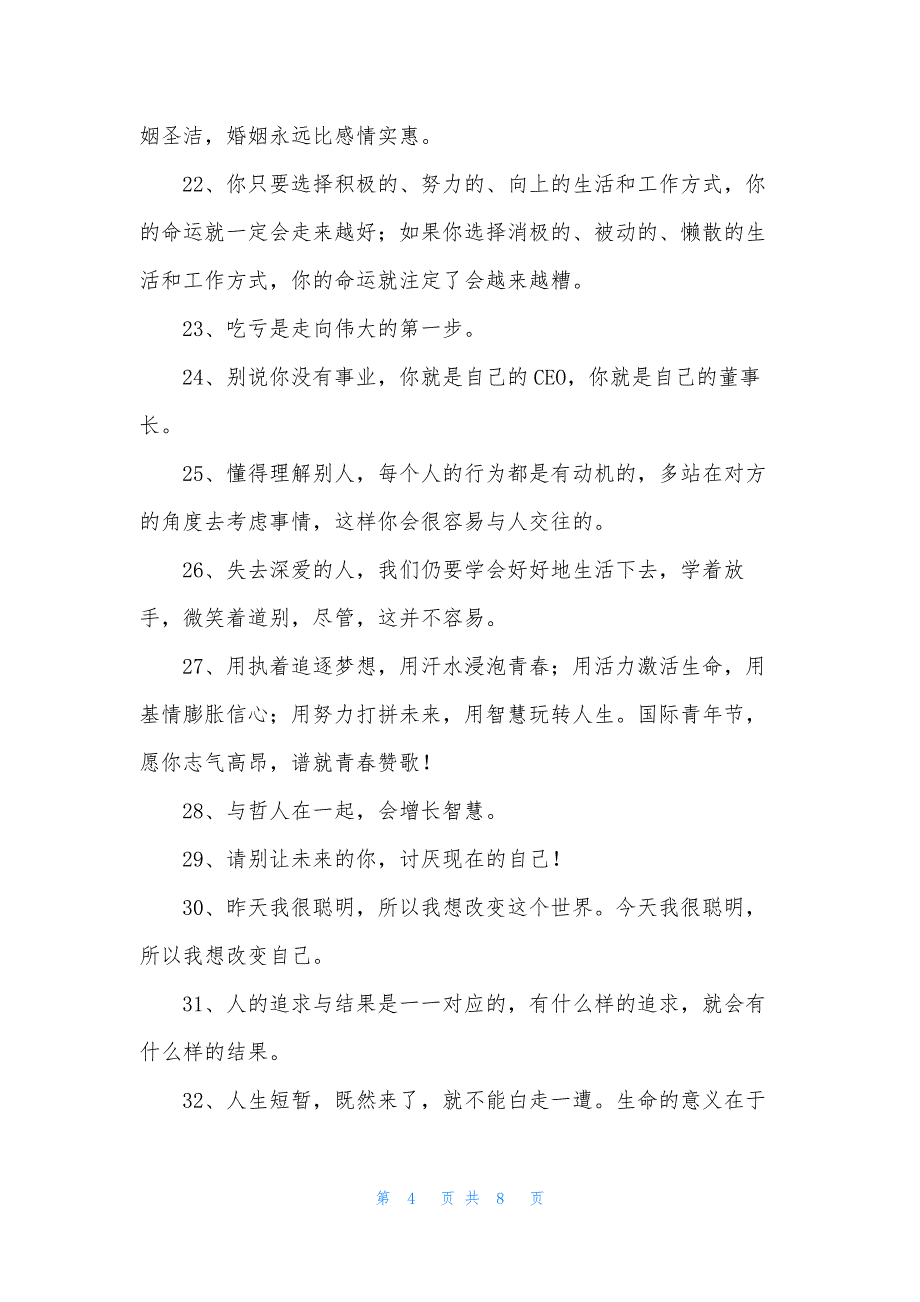 姻圣洁，婚姻永远比感情实惠。
22、你只要选择积极的、努力的、向上的生活和工作方式，你
的命运就一定会走来越好；如果你选择消极的、被动的、懒散的生
活和工作方式，你的命运就注定了会越来越糟。
23、吃亏是走向伟大的第一步。
24、别说你没有事业，你就是自己的 CEO，你就是自己的董事
长。
25、懂得理解别人，每个人的行为都是有动机的，多站在对方
的角度去考虑事情，这样你会很容易与人交往的。
26、失去深爱的人，我们仍要学会好好地生活下去，学着放
手，微笑着道别，尽管，这并不容易。
27、用执着追逐梦想，用汗水浸泡青春；用活力激活生命，用
基情膨胀信心；用努力打拼未来，用智慧玩转人生。国际青年节，
愿你志气高昂，谱就青春赞歌！
28、与哲人在一起，会增长智慧。
29、请别让未来的你，讨厌现在的自己！
30、昨天我很聪明，所以我想改变这个世界。今天我很聪明，
所以我想改变自己。
31、人的追求与结果是一一对应的，有什么样的追求，就会有
什么样的结果。
32、人生短暂，既然来了，就不能白走一遭。生命的意义在于
第 4 页 共 8 页